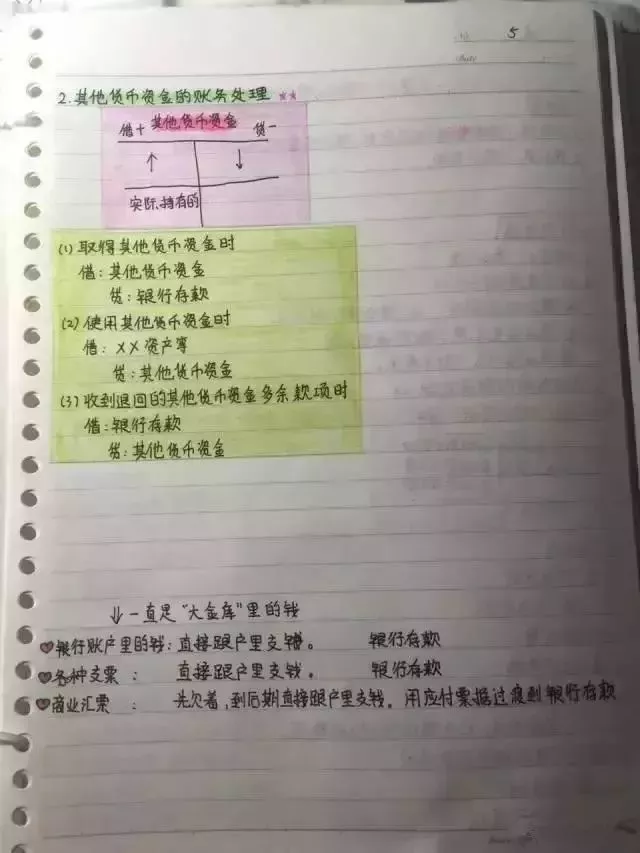 5
2.其他货币资金的账务处理 ★★
借+ 其他货币资金 贷-
↑ ↓
实际持有的
(1)取得其他货币资金时
借:其他货币资金
贷:银行存款
(2)使用其他货币资金时
借:XX资产等
贷:其他货币资金
(3)收到退回的其他货币资金多余款项时
借:银行存款
贷:其他货币资金
↓一直是“大金库”里的钱
♥银行账户里的钱:直接跟户里支钱。 银行存款
♥各种支票: 直接跟户里支钱。 银行存款
♥商业汇票: 先欠着,到后期直接跟户里支钱。用应付票据过渡到银行存款